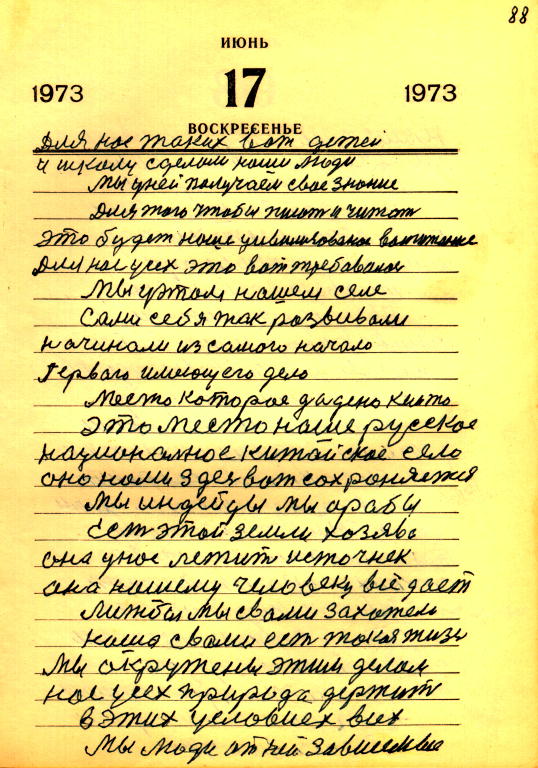 88
ИЮНЬ
1973 17 1973
ВОСКРЕСЕНЬЕ
Для нас таких вот детей
и школу сделали наши люди
Мы уней получаем свое знание
Для того чтобы писат и читат
Это будет наше воспитание
Для нас усех это вот требавалос
Мы уэтом нашем селе
Сами себя так развивали
начинали из самого начало
Первого имеющего дело
Место которое дадено
Это место наше русское
национално̀е китайское село
оно нами здез вот сохроняется
Мы индейцы мы арабы
Ест этой земли хозява
она унас летит источнек
она нашему человеку всё дает
Лижбы мы свами захотели
наша свами ест такая жизн
Мы окружены этим делом
нас усех природа держит
в этих условиех всех
Мы люди от ней зависемые